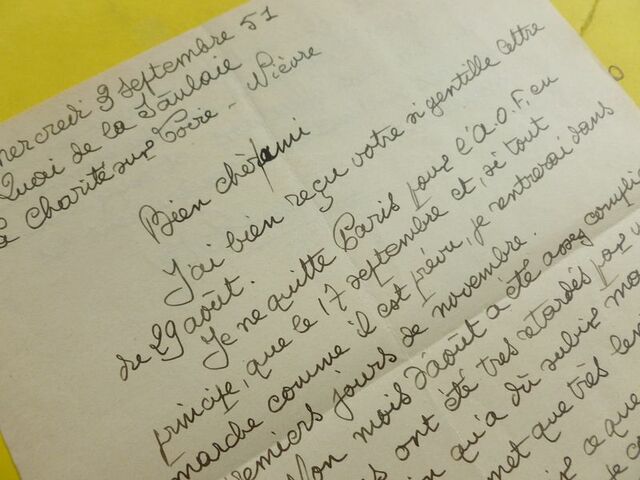 mercredi 9 septembre 51
Quai de la Saulaie
La Charité sur Loire - Nièvre
Bien cher ami
J'ai bien reçu votre si gentille lettre
du 29 août.
Je ne quitte Paris pour l'A.O.F, en
principe, que le 17 septembre et, si tout
marche comme il est prévu, je rentrerai dans
derniers jours de novembre.
Mon mois d'août a été assez compliq
ont été très retardés par u
qu'a dû subir mo
met que très len
ce que